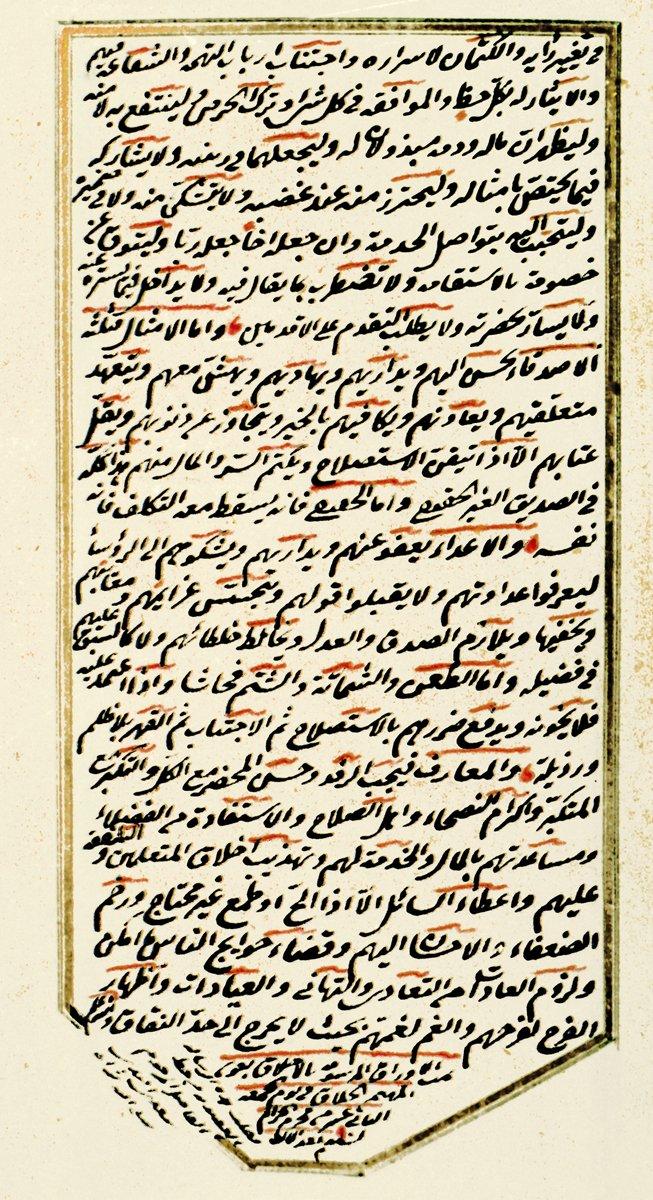 في تغيير رأيه والكتمان لاسراره واجتناب ارباب التهمة والشفاعة فيهم
والايثار له بكل حظ والموافقة في كل شر وترك الحرص لينتفع به لا منه
وليظهر ان ماله ودمه مبذولان له وليجعلهما في ولا يشاركه
فيما يختص بامثاله وليحترز منه عند غضبه ولا يشتكي منه ولا في
وليتحبب اليه بتواصل الخدمة وان جعله اخا جعله ربا وليتوق عن
خصومة بالاستقامة ولا تضطرب بما يقال فيه ولا يداخل فيما يستره عنه
ولا يسار بحضرته ولا يطلب التقدم على الاقدمين واما الامثال فثلثة
الاصدقاء يحسن اليهم ويداريهم ويهاديهم ويهش معهم ويتعهد
متعلقيهم ويعاونهم ويكافيهم بالخير ويتجاوز عن ذنوبهم ويقل
عتابهم الا اذا تيقن الاستصلاح ويكتم السر والمال منهم هذا كله
في الصديق الغير الحقيقي واما الحقيقي فانه يسقط معه التكلف فانه
نفسه والاعداء يعفو عنهم ويداريهم ويشكوهم الى الرؤسا
ليعرفوا عداوتهم ولا يقبلوا قولهم ويتجسس عزايمهم و معايبهم
ويخفيها ويلازم الصدق والعدل ويخالط خلطائهم ولا عليهم
في فضيلة واما الطعن والشماتة والشتم فحاشا واذا اعتمد عليه
فلا يخونه ويدفع ضررهم بالاستصلاح ثم الاجتناب ثم القهر بلا ظلم
ورذيلة والمعارف فيجب الرفد وحسن المحضر مع الكل والتكبر مع
المتكبر واكرام النصحاء واهل الصلاح والاستفادة من الفضلاء
ومساعدتهم بالمال والخدمة لهم وتهذيب اخلاق المتعلمين والشفقة
عليهم واعطاء السائل الا اذا الح او طمع غير محتاج ورحم
الضعفاء والاحسان اليهم وقضاء حوايج الناس ما امكن
ولزوم العادات في التعازي والتهاني والعيادات واظهار
الفرح لفرحهم والغم لغمهم بحيث لا يخرج الى حد النفاق
الاوراق الموسومة بالاخلاق بعون
الملهم الخلاق في يوم الجمعة
الثاني عشر من محرم الحرام